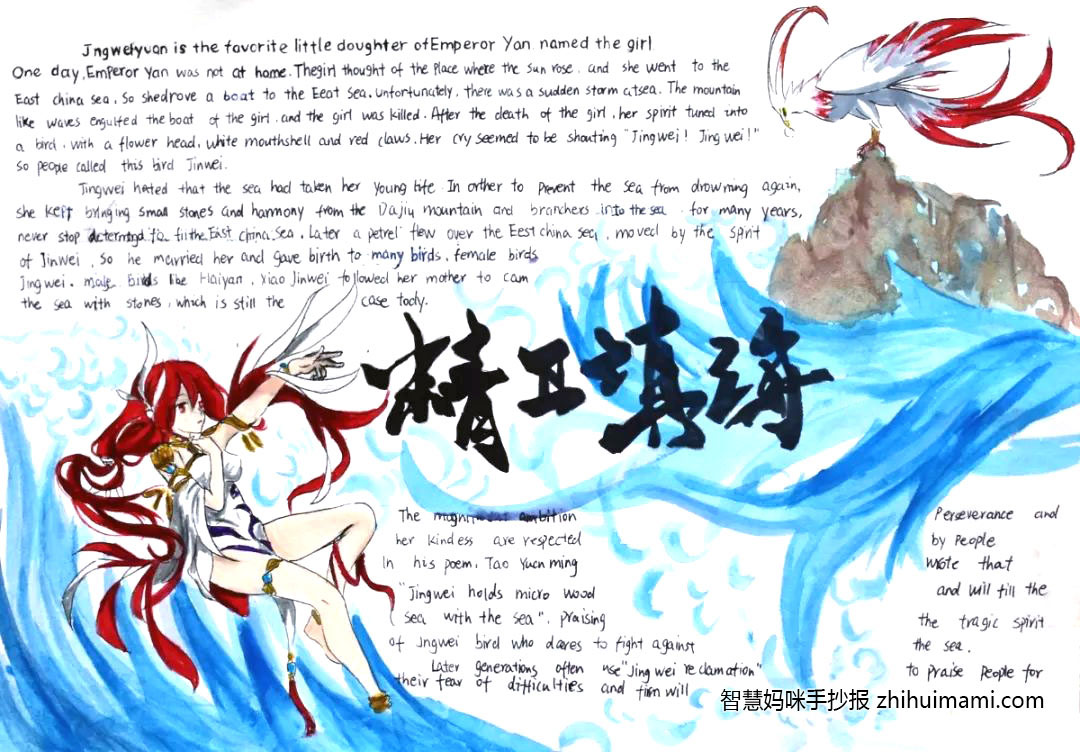 Jngweiyuan is the favorite little doughter of Emperor Yan named the girl
One day, Emperor Yan was not at home. Thegirl thought of the Place where the sun rose. and she went to the
East china sea, So shedrove a boat to the Eeat Sea. Unfortunately, there was a sudden storm atsea. The mountain
like waves engulfed the boat of the girl, and the girl was killed. After the death of the girl, her spirit tuned into
a bird, with a flower head, white mouthshell and red claws. Her cry seemed to be shouting "Jingwei! Jing wei!"
So people called this bird Jinwei.
Jingwei hated that the sea had taken her young life In orther to prevent the sea from drowning again,
she kept bringing small stones and harmony from the Dajiu mountain and branchers into the sea for many years,
never stop determingd to fill the East china Sea. Later a petrel flew over the Eest china sea, moved by the Sprit
of Jinwei, So he married her and gave birth to many birds, female birds
Jingwei. male birds like Haiyan, Xiao Jinwei followed her mother to cam
the sea with stones, which is still the case tody.
精卫填海
The magnificent ambition Perseverance and
her kindess are respected by People
In his poem, Tao Yuan ming wrote that
"Jingwei holds micro wood and will fill the
sea with the sea", praising the tragic spirit
of Jngwei bird who dares to fight against the sea.
Later generations often use "Jing wei reclamation" to praise people for
their fear of difficulties and firm will
智慧妈咪手抄报 zhihuimami.com